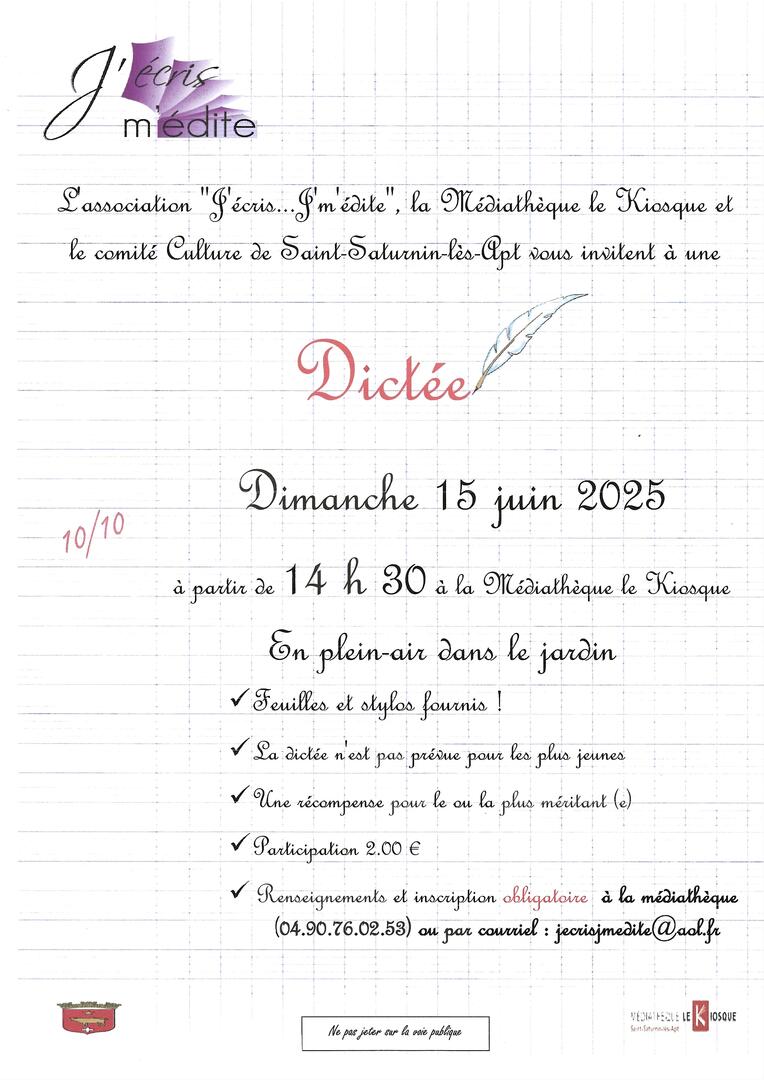 J'écris
m'édite
L'association "J'écris...J'm'édite", la Médiathèque le Kiosque et
le comité Culture de Saint-Saturnin-lès-Apt vous invitent à une
Dictée
Dimanche 15 juin 2025
10/10
à partir de 14 h 30 à la Médiathèque le Kiosque
En plein-air dans le jardin
✓ Feuilles et stylos fournis !
✓ La dictée n'est pas prévue pour les plus jeunes
✓ Une récompense pour le ou la plus méritant (e)
✓ Participation 2.00 €
✓ Renseignements et inscription obligatoire à la médiathèque
(04.90.76.02.53) ou par courriel : jecrisjmedite@aol.fr
Ne pas jeter sur la voie publique
MÉDIATHÈQUE LE KIOSQUE
Saint-Saturnin-lès-Apt